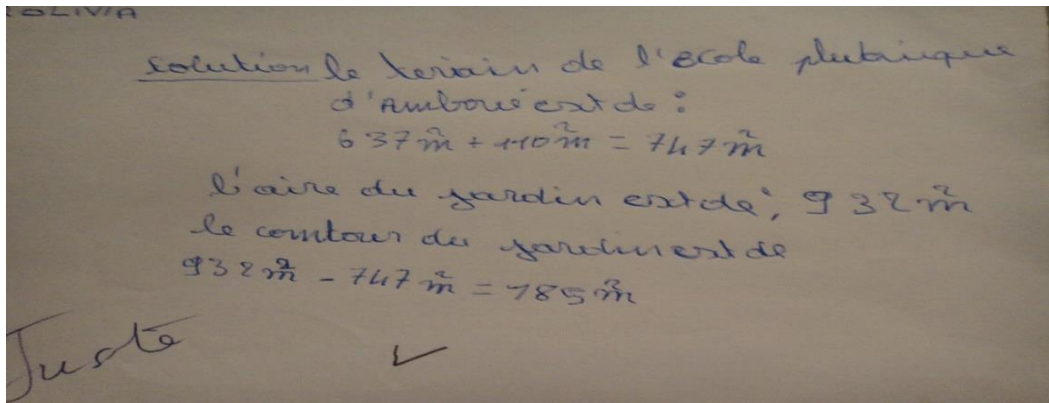 OLIVIA
solution le terain de l'ecole plubrique
d'Amboué est de :
637m² + 110m² = 747m²
l'aire du jardin est de : 932m²
le contour du jardin est de
932m² - 747m² = 185m²
Juste